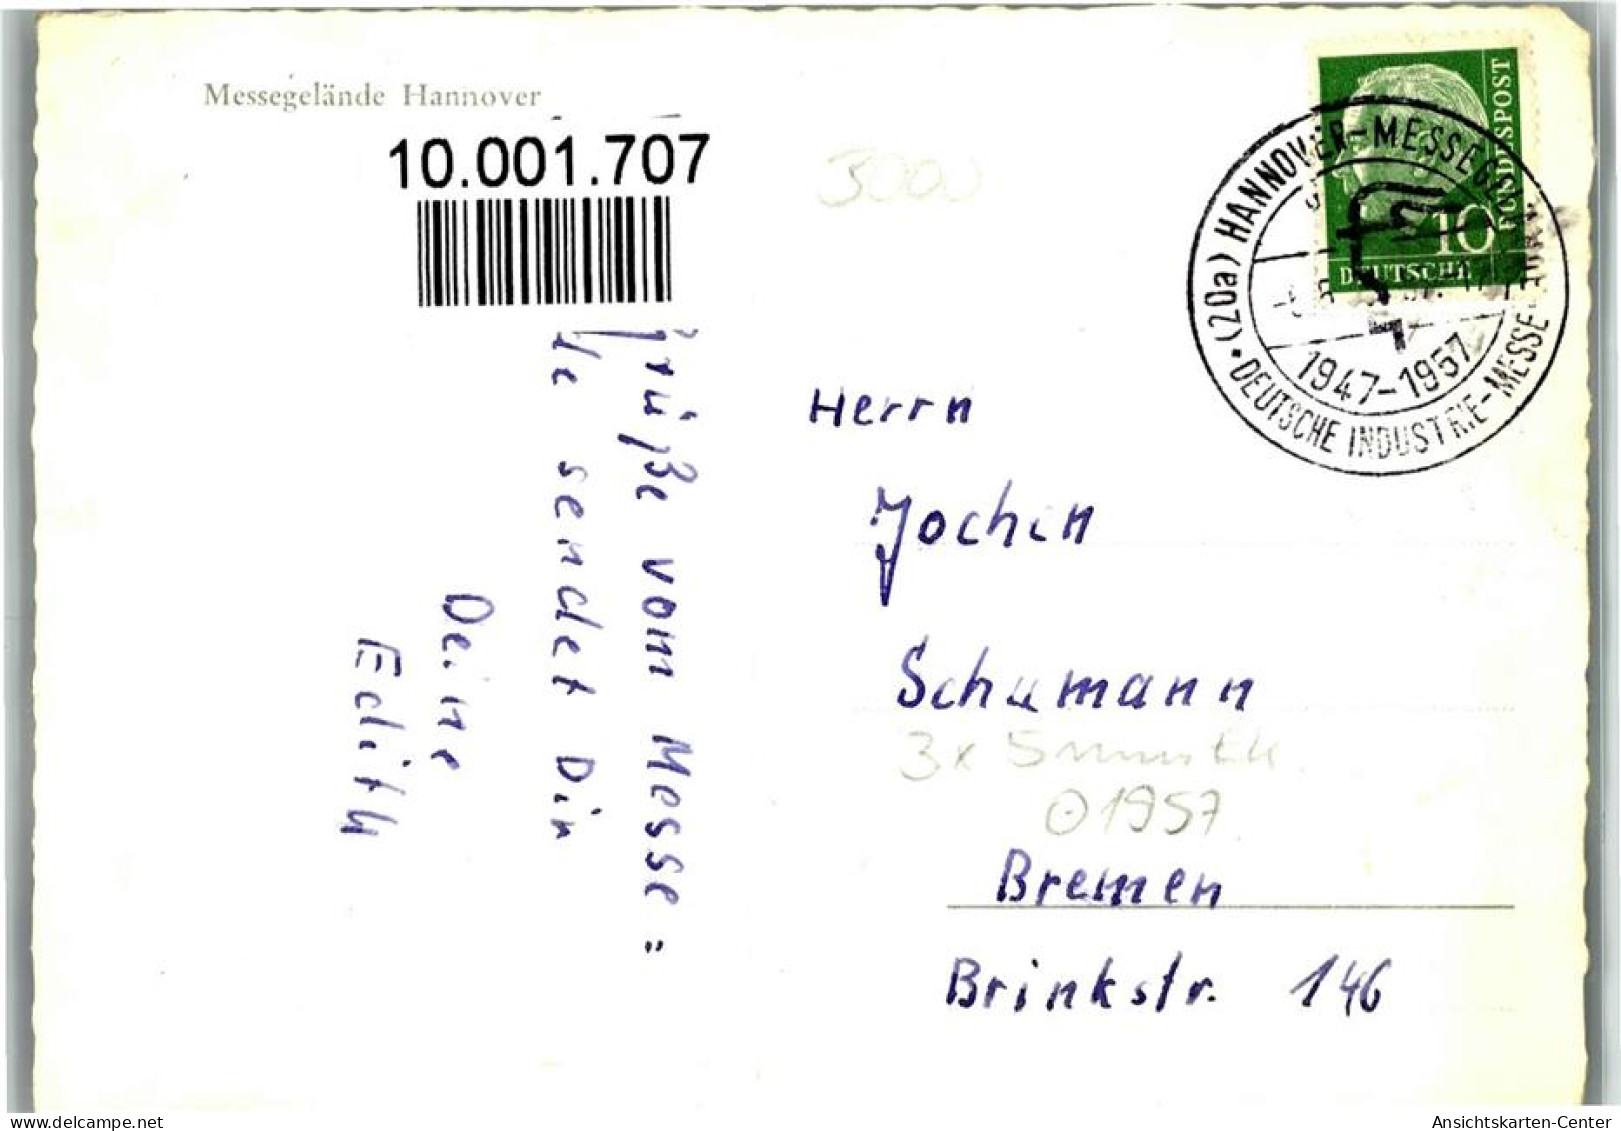 Messegelände Hannover
10.001.707
3000
DEUTSCHE BUNDESPOST
10
(20a) HANNOVER-MESSEGELÄNDE
1947-1957
DEUTSCHE INDUSTRIE-MESSE
Grüße vom Messe=
sendet Dir
Deine
Edith
Herrn
Jochen
Schumann
3x
1957
Bremen
Brinkstr. 146
Ansichtskarten-Center